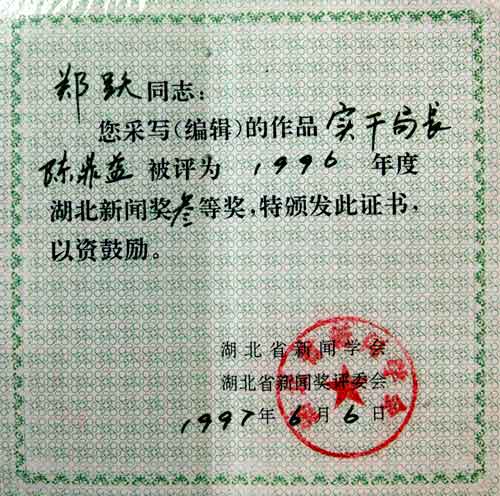 郑跃同志：
您采写（编辑）的作品实干局长
陈鼎益被评为1996年度
湖北新闻奖叁等奖，特颁发此证书，
以资鼓励。
湖北省新闻学会
湖北省新闻奖评委会
1997年6月6日